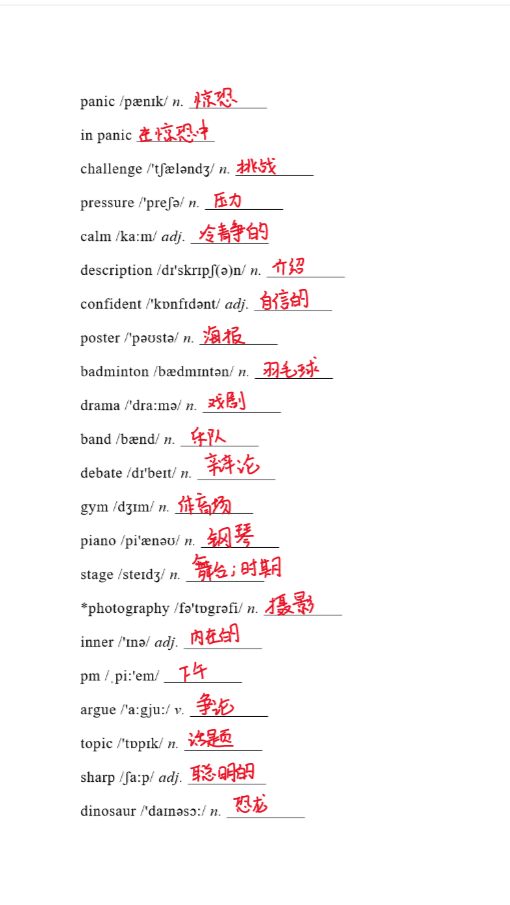 panic /pænɪk/ n. 惊恐
in panic 在惊恐中
challenge /'tʃæləndʒ/ n. 挑战
pressure /'preʃə/ n. 压力
calm /ka:m/ adj. 冷静的
description /dɪ'skrɪpʃ(ə)n/ n. 介绍
confident /'kɒnfɪdənt/ adj. 自信的
poster /'pəʊstə/ n. 海报
badminton /bædmɪntən/ n. 羽毛球
drama /'dra:mə/ n. 戏剧
band /bænd/ n. 乐队
debate /dɪ'beɪt/ n. 辩论
gym /dʒɪm/ n. 体育场
piano /pi'ænəʊ/ n. 钢琴
stage /steɪdʒ/ n. 舞台；时期
*photography /fə'tɒgrəfi/ n. 摄影
inner /'ɪnə/ adj. 内在的
pm /ˌpi:'em/ 下午
argue /'a:gju:/ v. 争论
topic /'tɒpɪk/ n. 话题
sharp /ʃa:p/ adj. 聪明的
dinosaur /'daɪnəsɔ:/ n. 恐龙